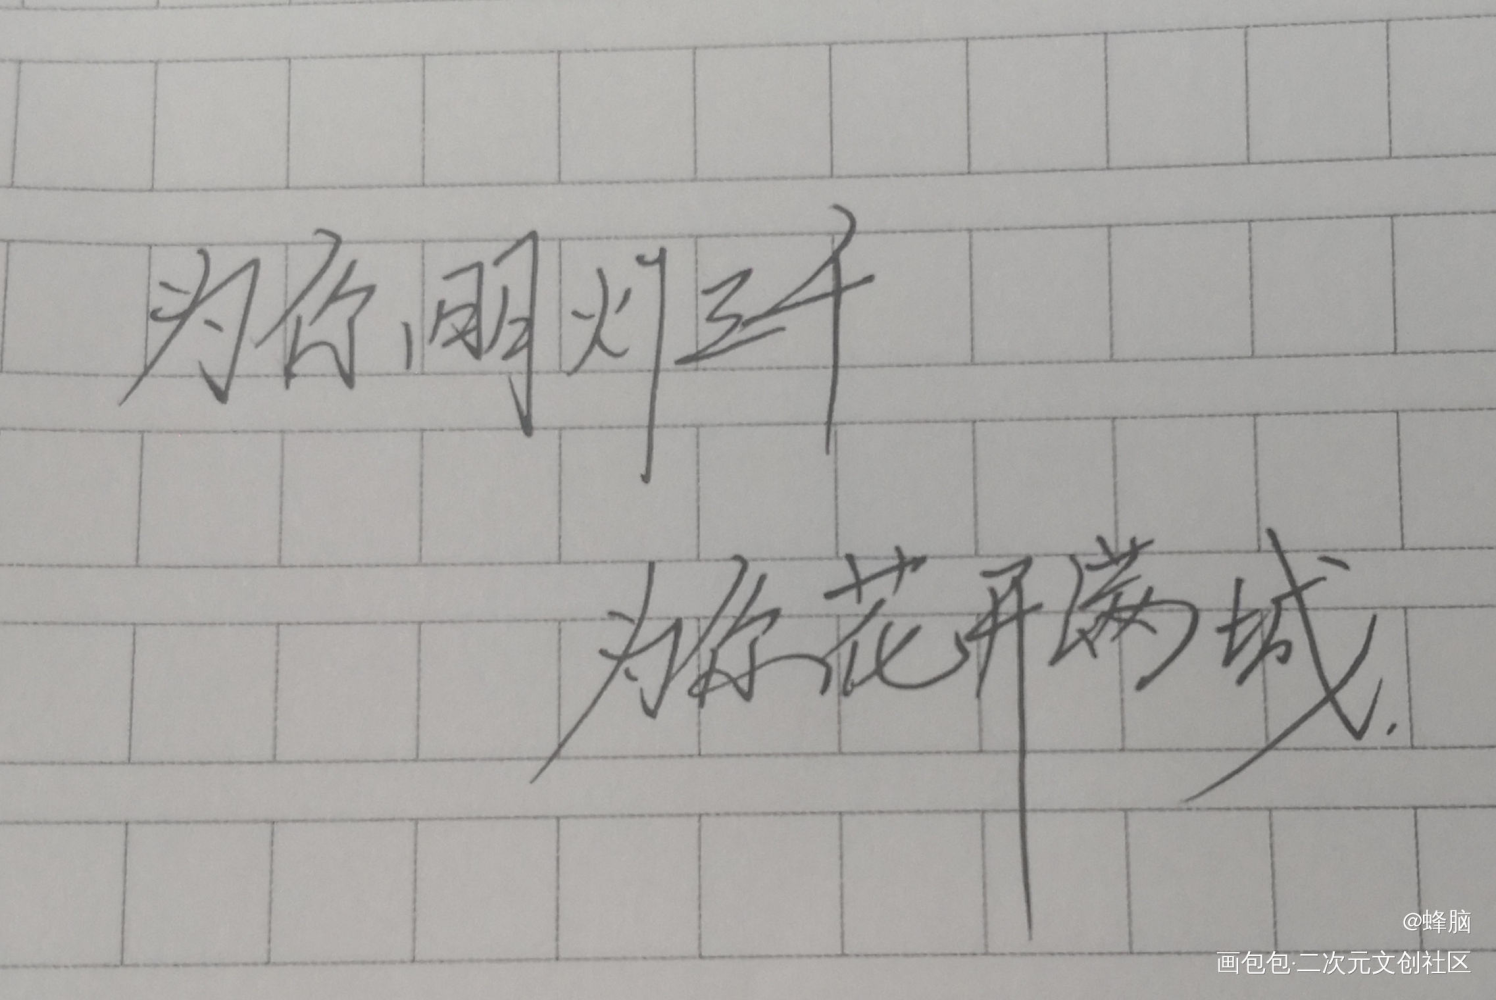 为你明灯三千
为你花开满城.
@蜂脑
画包包·二次元文创社区